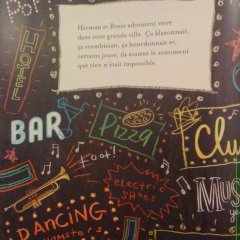 Herman et Rosie adoraient vivre
dans cette grande ville. Ça klaxonnait,
ça vrombissait, ça bourdonnait et,
certains jours, ils avaient le sentiment
que rien n'était impossible.
HOTEL
BAR
Pizza
Clu
Toot!
electric
SHOES
MUS
DANCING
hamsters